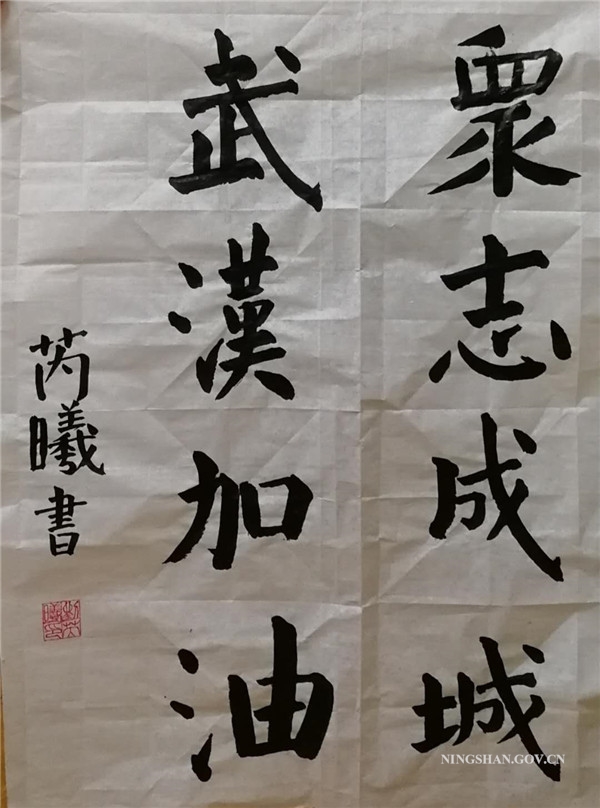 眾志成城
武漢加油
芮曦書
NINGSHAN.GOV.CN